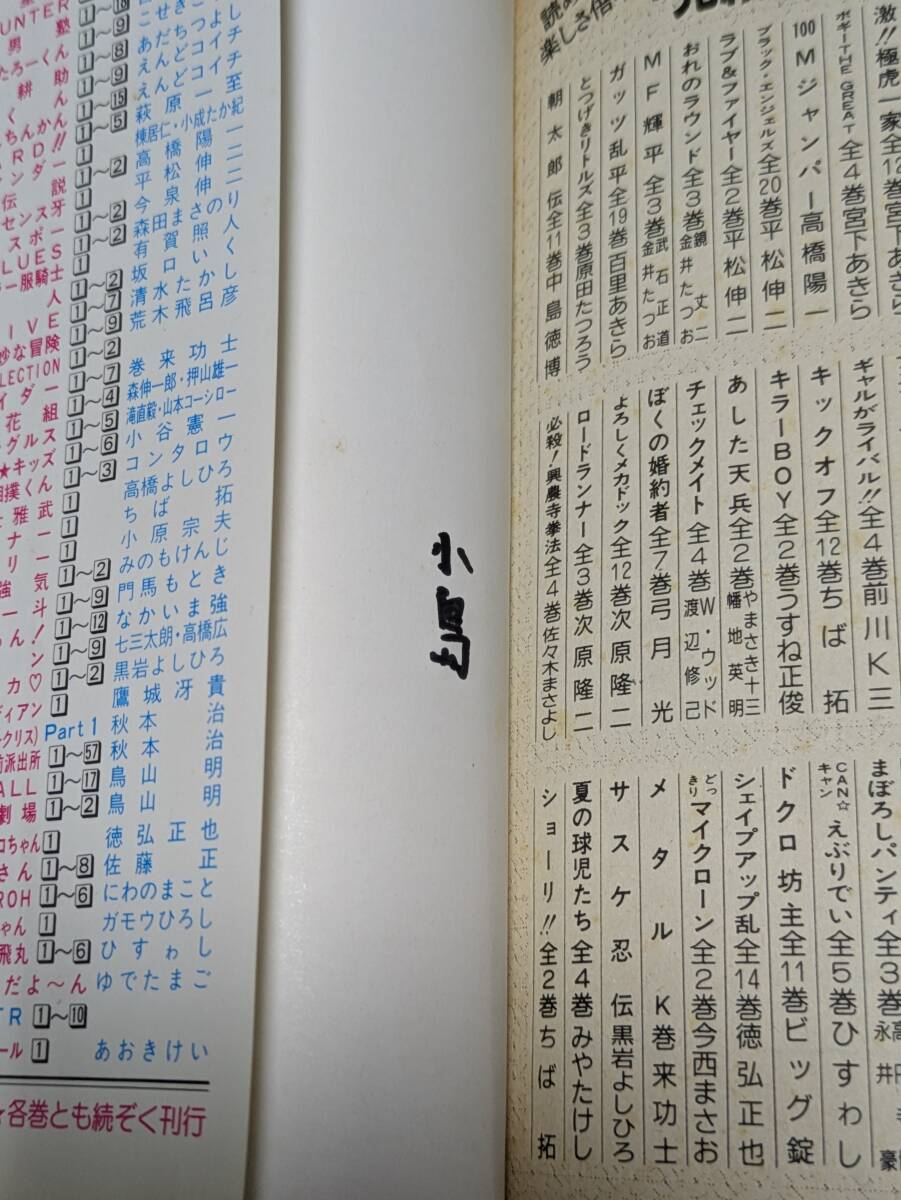 UNTER
男塾
たろーくん
耕助
くん
ちんかん
RD!! 1~5 萩原一至
ンダー 1 棟居仁・小成たか紀
伝説 1~2 高橋陽一
センス牙 平松伸二
スポー 1~2 今泉伸二
LUES 1~2 森田まさのり
ー服騎士 有賀照人
人 1~2 坂口いく
IVE 1~7 清水たかし
妙な冒険 1~9 荒木飛呂彦
LECTION 1~2
イダー 1~7 巻来功士
花組 1~4 森伸一郎・押山雄一
グルス 1~5 滝直毅・山本コーシロー
★キッズ 1~6 小谷憲一
相撲くん 1~3 コンタロウ
雅武 1 高橋よしひろ
ナー 1 ちば拓
リー 1 小原宗夫
強気 1~2 みのもけんじ
一斗 1~9 門馬もとき
ゃん! 1~12 なかいま強
ン 1~9 七三太朗・高橋広
カ♡ 1~2 黒岩よしひろ
ディアン 1 鷹城冴貴
クリス) Part1 秋本治
前派出所 1~57 秋本治
ALL 1~17 鳥山明
劇場 1~2 鳥山明
コちゃん 1 徳弘正也
さん 1~8 佐藤正
ROH 1~6 にわのまこと
ゃん 1 ガモウひろし
飛丸 1~6 ひすゎし
だよ~ん ゆでたまご
TR 1~10
ール 1 あおきけい
各巻とも続ぞく刊行
小島
楽しさ倍
激!!極虎一家全12巻宮下あきら
ボギーTHE GREAT全4巻宮下あきら
100Mジャンパー高橋陽一
ブラック・エンジェルズ全20巻平松伸二
ラブ&ファイヤー全2巻平松伸二
おれのラウンド全3巻鏡丈二 金井たつお
MF輝平全3巻武石正道 金井たつお
ガッツ乱平全19巻百里あきら
とつげきリトルズ全3巻原田たつろう
朝太郎伝全11巻中島徳博
ギャルがライバル!!全4巻前川K三
キックオフ全12巻ちば拓
キラーBOY全2巻うすね正俊
あした天兵全2巻やまさき十三 幡地英明
チェックメイト全4巻W・ウッド 渡辺修己
ぼくの婚約者全7巻弓月光
よろしくメカドック全12巻次原隆二
ロードランナー全3巻次原隆二
必殺!興農寺拳法全4巻佐々木まさよし
まぼろしパンティ全3巻
CAN☆キャンえぶりでい全5巻ひすゎし
ドクロ坊主全11巻ビッグ錠
シェイプアップ乱全14巻徳弘正也
どっきりマイクローン全2巻今西まさお
メタルK巻来功士
サスケ忍伝黒岩よしひろ
夏の球児たち全4巻みやたけし
ショーリ!!全2巻ちば拓